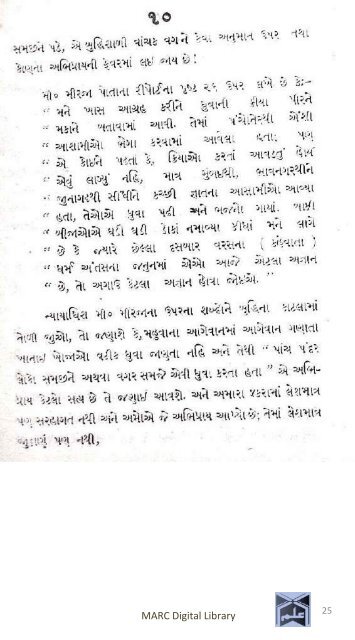 ૧૦
સમજીને પઢે, એ બુદ્ધિશાળી વાંચક વર્ગને કેવા અનુમાન ઉપર તથા
કોણના અભિપ્રાયની ફેવરમાં લઇ જાય છે!
મી૦ મીરજા પોતાના રીપોર્ટના પૃષ્ઠ ૨૬ ઉપર લખે છે કે:-
“ મને ખાસ આગ્રહ કરીને દુવાની ક્રીયા પીરને
“ મકાને બતાવામાં આવી. તેમાં
“ આસામીઓ ભેગા કરવામાં આવેલા હતા; પણ
“ એ કોઇને પઢતા કે, ક્રિયાઓ કરતાં આવડતું હોય
“ એવું લાગ્યું નહિ, માત્ર મુંબઇથી, ભાવનગરથીને
“ જુનાગઢથી સીધીને કચ્છી જ્ઞાતના આસામીઓ આવ્યા
“ હતા, તેઓએ દુવા પઢી અને ભજનો ગાયાં. બાકી
“ બીજાઓએ ઘડી ઘડી ડોકાં નમાવ્યા કીધાં મને લાગે
“ છે કે જ્યારે છેલ્લા દસબાર વરસના ( કહેવાતા )
“ ધર્મ અંતસના જનુનમાં એઓ આજે એટલા અજ્ઞાન
“ છે, તો અગાઉ કેટલા અજ્ઞાન હોવા જોઇએ. ”
ન્યાયાધિશ મી૦ મીરજાના ઉપરના શબ્દોને બુદ્ધિના કાટલામાં
તોળી જુઓ, તો જણાશે કે, મહુવાના આગેવાનમાં આગેવાન ગણાતા
ખાનાઇ ખોજાઓ ઘટીક દુવા જાણતા નહિ અને તેથી “ પાંચ પંદર
લોકો સમજીને અથવા વગર સમજે એવી દુવા કરતા હતા ” એ અભિ-
પ્રાય કેટલો સત્ય છે તે જણાઇ આવશે. અને અમારા ફકરામાં લેશમાત્ર
પણ સરહાગત નથી અને અમોએ જે અભિપ્રાય આપ્યો છે; તેમાં લેશમાત્ર
જુઠાણું પણ નથી,
MARC Digital Library
25